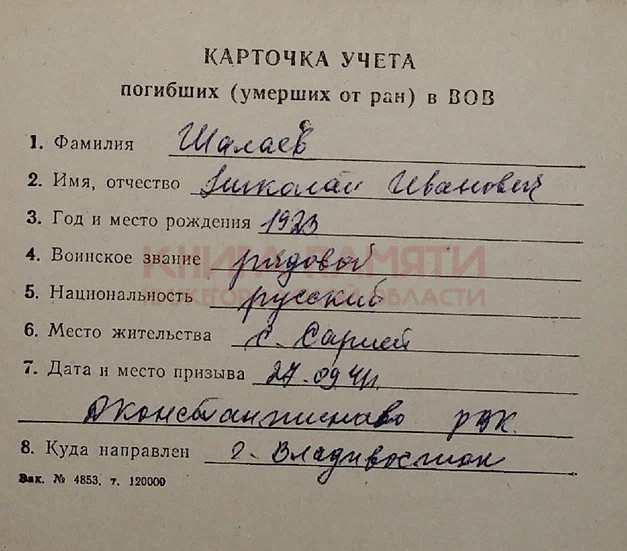 КАРТОЧКА УЧЕТА
погибших (умерших от ран) в ВОВ
1. Фамилия Шалаев
2. Имя, отчество Николай Иванович
3. Год и место рождения 1923
КНИГА ПАМЯТИ
НИЖЕГОРОДСКОЙ ОБЛАСТИ
4. Воинское звание рядовой
5. Национальность русский
6. Место жительства с. Сарлей
7. Дата и место призыва 27.09.41г.
Д Константиново РВК
8. Куда направлен г. Владивосток
Зак. № 4853. т. 120000